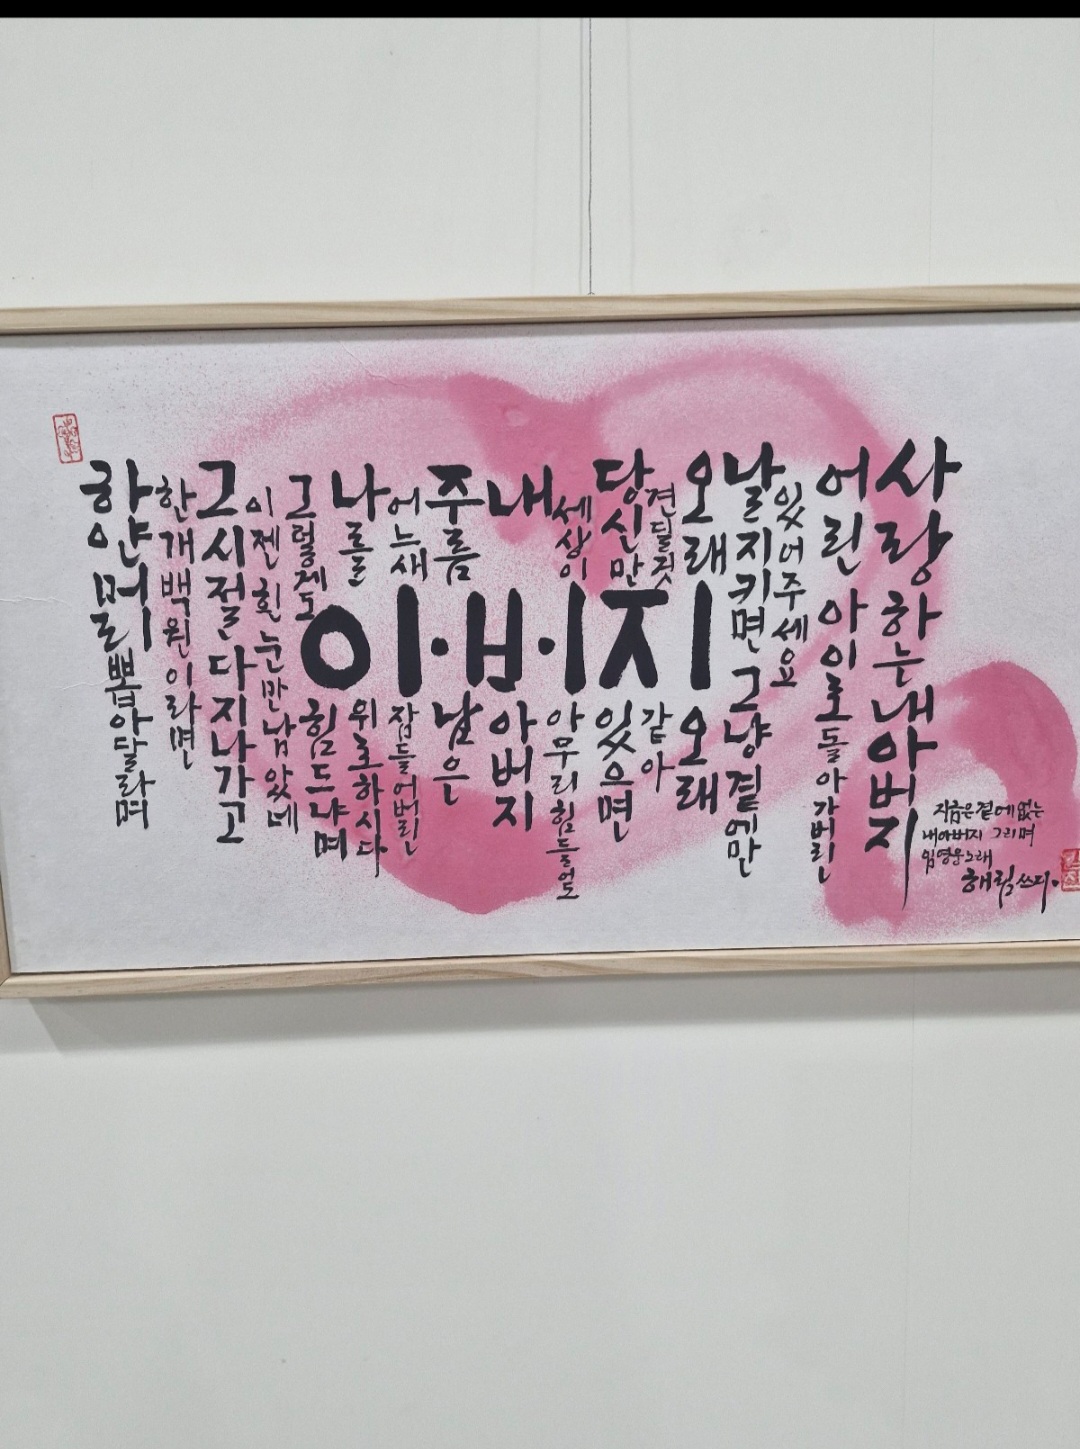 하얀머릴 뽑아달라며
한개백원이라면
그시절 다 지나가고
이젠 흰눈만 남았네
그렇게도 힘드냐며
나를 위로하시다
어느새 잠들어버린
주름 남은
내 아버지
세상이 아무리 힘들어도
당신만 있으면
견딜것 같아
오래 오래
날지키면 그냥곁에만
있어주세요
어린 아이로 돌아가버린
사랑하는 내아버지
아·버·지
지금은 곁에 없는
내아버지 그리며
임영웅노래
해림쓰다.